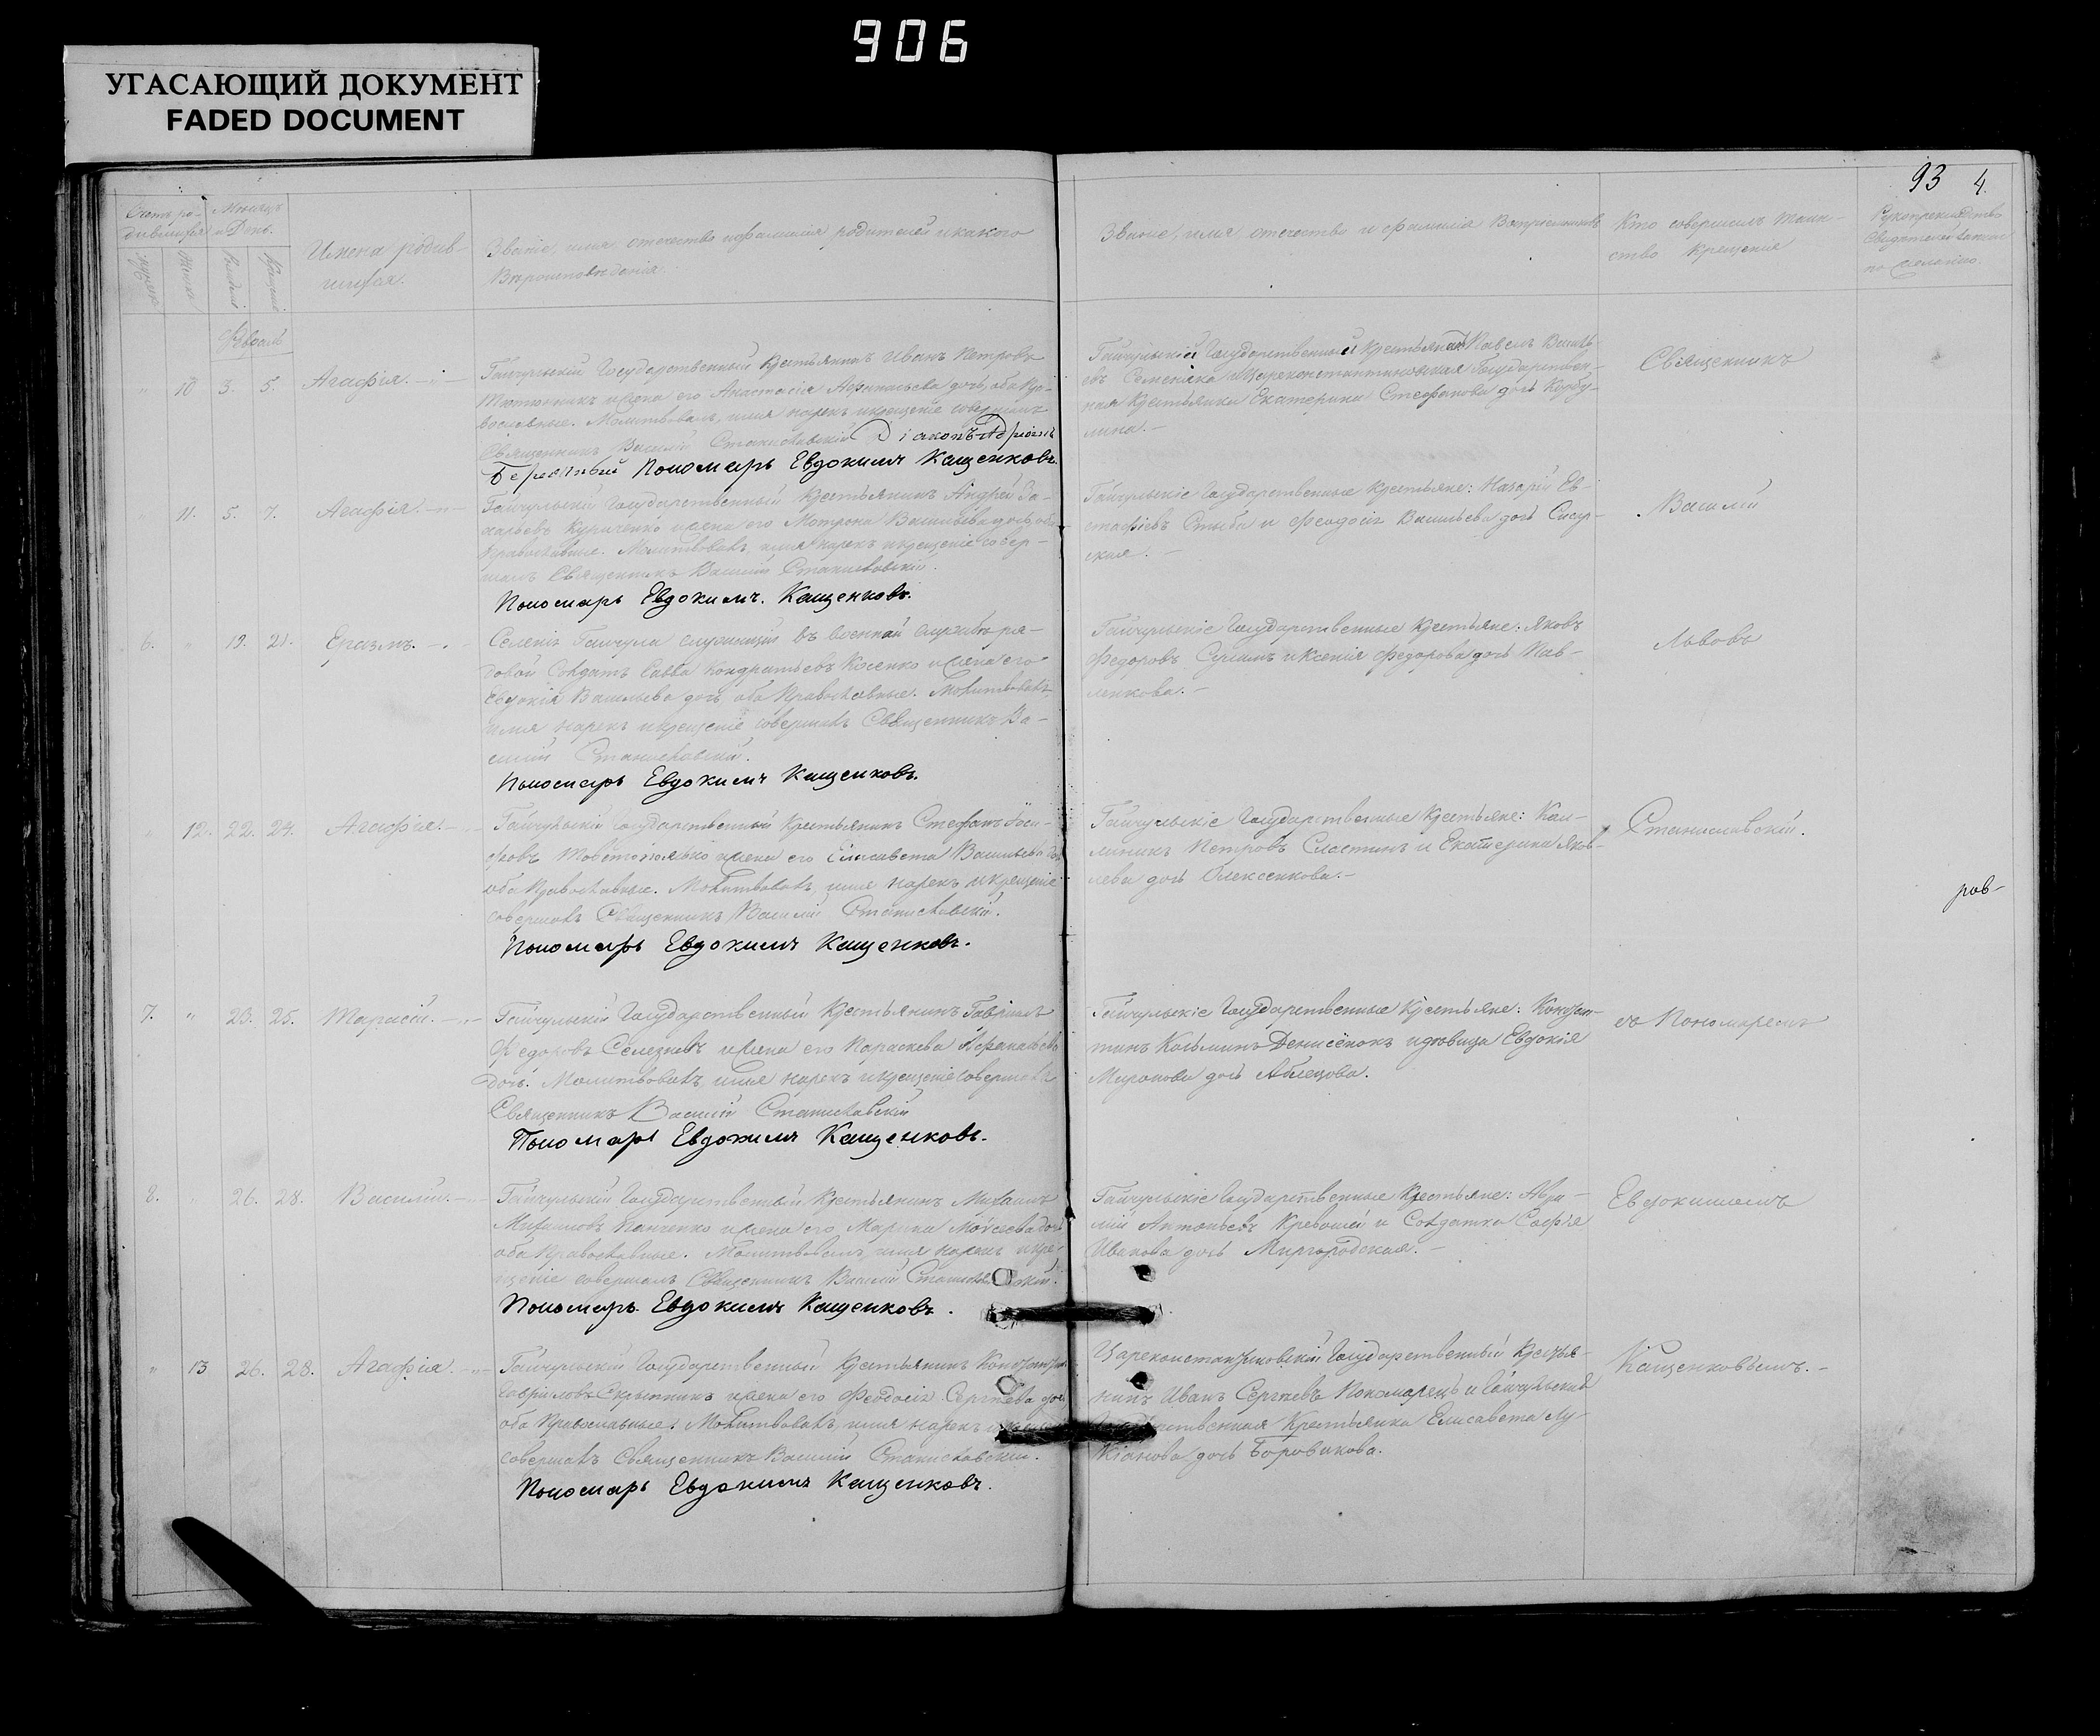 906
УГАСАЮЩИЙ ДОКУМЕНТ
FADED DOCUMENT
93 4.
Счетъ ро-
дившихся
Мѣсяцъ
и День.
Имена родив-
шихся.
Званіе, имя, отечество и фамилія родителей и какого
Вѣроисповѣданія.
Званіе, имя, отечество и фамилія Воспріемниковъ
Кто совершилъ таин-
ство крещенія
Рукоприкладство
Свидетелей записи
по желанію.
Февраль
10 3. 5. Агафія.
Гайчульскій Государственный Крестьянинъ Иванъ Петровъ
Тютюнникъ и жена его Анастасія дочь, оба Пра-
вославные. Молитвовалъ, имя нарекъ и крещеніе совершилъ
Священникъ Василій Станиславскій Діаконъ
Пономарь Евдокимъ Кащенковъ.
Гайчульскій Государственный Крестьянинъ Павелъ Василь-
евъ Семеняка и Цареконстантиновская Государствен-
ная Крестьянка Екатерина Стефанова дочь
Священникъ
11. 5. 7. Агафія.
Гайчульскій Государственный Крестьянинъ Андрей За-
харьевъ Кириченко и жена его Мотрона Васильева дочь, оба
Православные. Молитвовалъ имя нарекъ и крещеніе совер-
шилъ Священникъ Василій Станиславскій.
Пономарь Евдокимъ Кащенковъ.
Гайчульскіе Государственные Крестьяне: Назарій Ев-
стафіевъ и Феодосія Васильева дочь
Василій
6. " 19. 21. Еразмъ.
Селенія Гайчула служащій въ военной службѣ ря-
довой Солдатъ Савва Кондратьевъ Косенко и жена его
Евдокія Васильева дочь оба Православные. Молитвовалъ
имя нарекъ и крещеніе совершилъ Священникъ Ва-
силій Станиславскій.
Пономарь Евдокимъ Кащенковъ.
Гайчульскіе Государственные Крестьяне: Яковъ
Федоровъ и Ксенія Федорова дочь Пав-
ленкова.
Львовъ
" 12. 22. 24. Агафія.
Гайчульскій Государственный Крестьянинъ Стефанъ Іоси-
фовъ и жена его Елисавета Васильева
оба Православные. Молитвовалъ, имя нарекъ и крещеніе
совершилъ Священникъ Василій Станиславскій.
Пономарь Евдокимъ Кащенковъ.
Гайчульскіе Государственные Крестьяне: Кал-
линикъ Петровъ Сластинъ и Екатерина Яков-
лева дочь Олексенкова.
Станиславскій.
ров-
7. " 23. 25. Тарасій.
Гайчульскій Государственный Крестьянинъ Гавріилъ
Федоровъ Селезневъ и жена его Параскева
дочь. Молитвовалъ, имя нарекъ и крещеніе совершилъ
Священникъ Василій Станиславскій
Пономарь Евдокимъ Кащенковъ.
Гайчульскіе Государственные Крестьяне: Констан-
тинъ Косьминъ Денисенокъ и девица Евдокія
Миронова дочь Аблецова.
съ Пономаремъ
8. 26. 28. Василій.
Гайчульскій Государственный Крестьянинъ Михаилъ
Михаиловъ Панченко и жена его Марина Моисеева дочь
оба Православные. Молитвовалъ, имя нарекъ и кре-
щеніе совершилъ Священникъ Василій Станиславскій.
Пономарь Евдокимъ Кащенковъ.
Гайчульскіе Государственные Крестьяне:
Антоньевъ и Солдатка Софія
Иванова дочь Миргородская.
Евдокимомъ
" 13 26. 28. Агафія.
Гайчульскій Государственный Крестьянинъ
Гавриловъ Скрыпникъ и жена его Феодосія Сергѣева дочь
оба Православные. Молитвовалъ, имя нарекъ
совершилъ Священникъ Василій Станиславскій.
Пономарь Евдокимъ Кащенковъ.
Цареконстантиновскій Государственный Крестья-
нинъ Иванъ Сергѣевъ Пономарець и Гайчульская
Крестьянка Елисавета Лу-
кіанова дочь Боровикова.
Кащенковымъ.